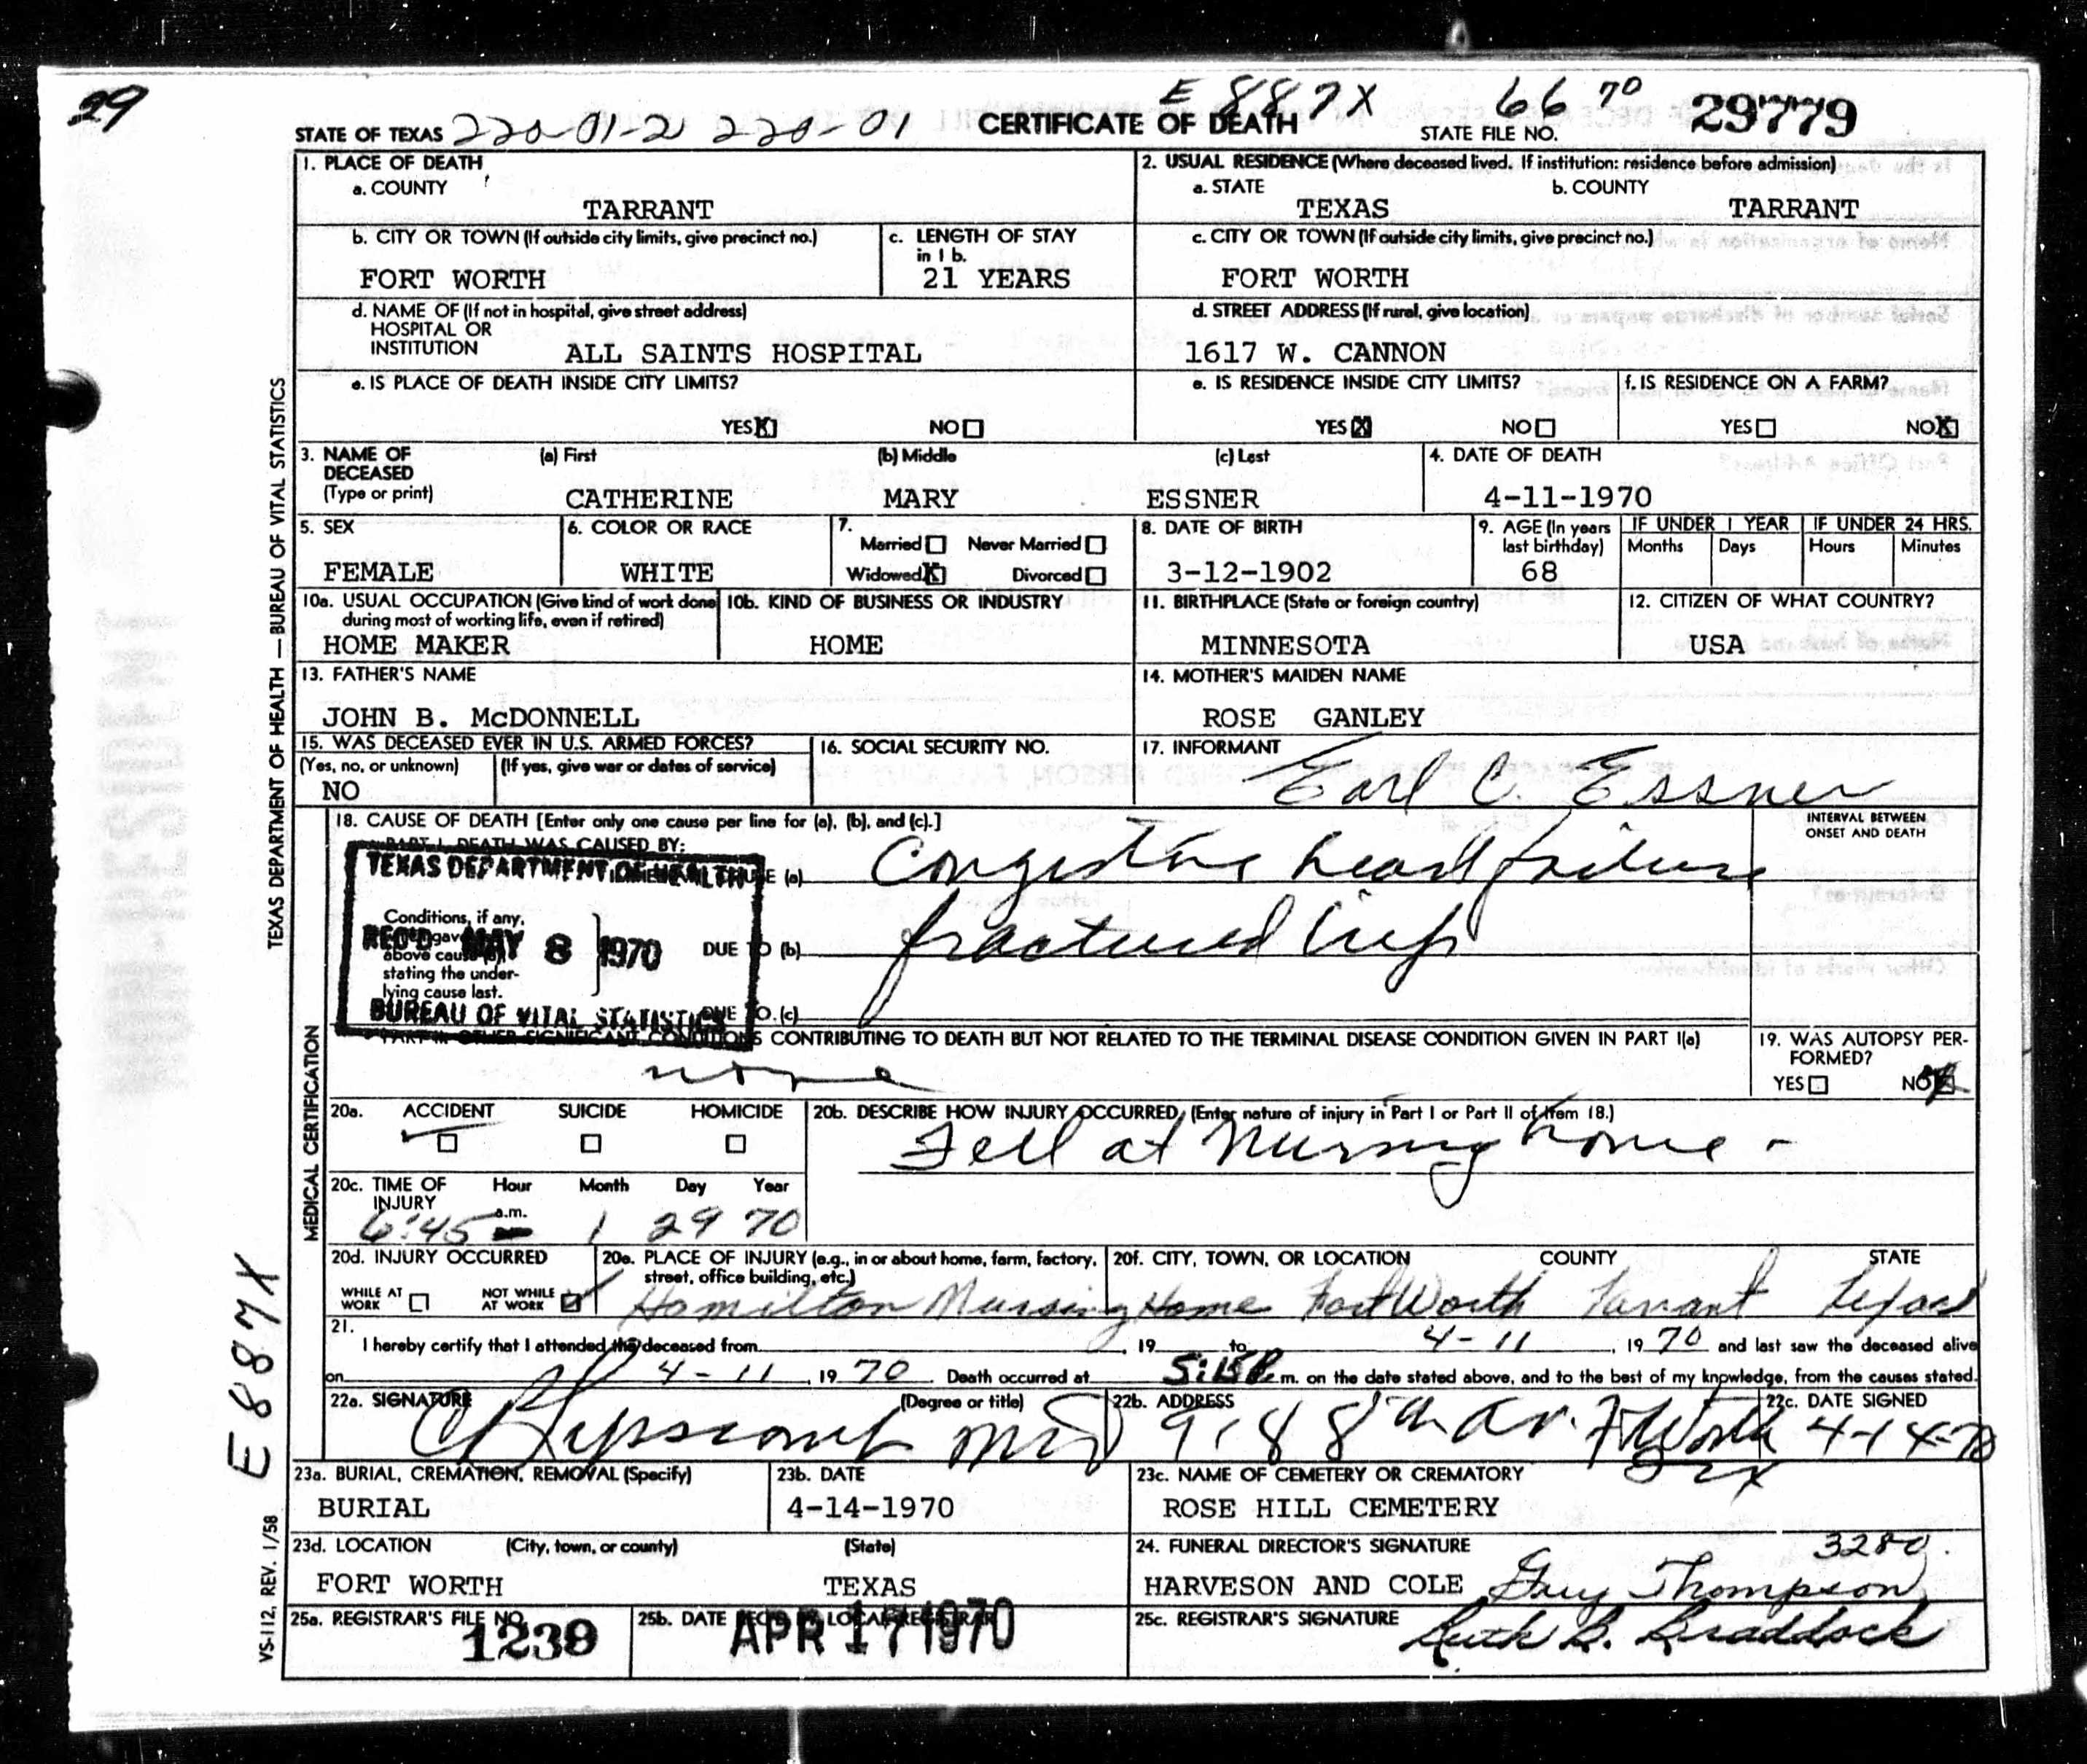 29
E 887X 66 70 29779
STATE OF TEXAS 220-01-2 220-01 CERTIFICATE OF DEATH STATE FILE NO.
1. PLACE OF DEATH
a. COUNTY
TARRANT
2. USUAL RESIDENCE (Where deceased lived. If institution: residence before admission)
a. STATE b. COUNTY
TEXAS TARRANT
b. CITY OR TOWN (If outside city limits, give precinct no.)
FORT WORTH
c. LENGTH OF STAY
in 1 b.
21 YEARS
c. CITY OR TOWN (If outside city limits, give precinct no.)
FORT WORTH
d. NAME OF (If not in hospital, give street address)
HOSPITAL OR
INSTITUTION ALL SAINTS HOSPITAL
d. STREET ADDRESS (If rural, give location)
1617 W. CANNON
e. IS PLACE OF DEATH INSIDE CITY LIMITS?
YES X NO
e. IS RESIDENCE INSIDE CITY LIMITS?
YES X NO
f. IS RESIDENCE ON A FARM?
YES NO X
3. NAME OF DECEASED
(Type or print)
(a) First (b) Middle (c) Last
CATHERINE MARY ESSNER
4. DATE OF DEATH
4-11-1970
5. SEX
FEMALE
6. COLOR OR RACE
WHITE
7.
Married Never Married
Widowed X Divorced
8. DATE OF BIRTH
3-12-1902
9. AGE (In years
last birthday)
68
IF UNDER 1 YEAR IF UNDER 24 HRS.
Months Days Hours Minutes
10a. USUAL OCCUPATION (Give kind of work done
during most of working life, even if retired)
HOME MAKER
10b. KIND OF BUSINESS OR INDUSTRY
HOME
11. BIRTHPLACE (State or foreign country)
MINNESOTA
12. CITIZEN OF WHAT COUNTRY?
USA
13. FATHER'S NAME
JOHN B. McDONNELL
14. MOTHER'S MAIDEN NAME
ROSE GANLEY
15. WAS DECEASED EVER IN U.S. ARMED FORCES?
(Yes, no, or unknown) (If yes, give war or dates of service)
NO
16. SOCIAL SECURITY NO.
17. INFORMANT
Earl C. Essner
18. CAUSE OF DEATH [Enter only one cause per line for (a), (b), and (c).]
INTERVAL BETWEEN
ONSET AND DEATH
PART I. DEATH WAS CAUSED BY:
TEXAS DEPARTMENT OF HEALTH
(a) Congestive heart failure
Conditions, if any,
REC'D MAY 8 1970
above cause (a),
stating the under-
lying cause last.
DUE TO (b) fractured hip
BUREAU OF VITAL STATISTICS
DUE TO (c)
PART II. OTHER SIGNIFICANT CONDITIONS CONTRIBUTING TO DEATH BUT NOT RELATED TO THE TERMINAL DISEASE CONDITION GIVEN IN PART I(a)
none
19. WAS AUTOPSY PER-
FORMED?
YES NO X
20a. ACCIDENT SUICIDE HOMICIDE
20b. DESCRIBE HOW INJURY OCCURRED. (Enter nature of injury in Part I or Part II of Item 18.)
Fell at nursing home -
20c. TIME OF
INJURY
Hour Month Day Year
6:45 a.m. 1 29 70
20d. INJURY OCCURRED
WHILE AT
WORK
NOT WHILE
AT WORK
20e. PLACE OF INJURY (e.g., in or about home, farm, factory,
street, office building, etc.)
Hamilton Nursing Home
20f. CITY, TOWN, OR LOCATION COUNTY STATE
Fort Worth Tarrant Texas
21.
I hereby certify that I attended the deceased from , 19 to 4-11 , 1970 and last saw the deceased alive
on 4-11 , 1970. Death occurred at 5:15P.m. on the date stated above, and to the best of my knowledge, from the causes stated.
22a. SIGNATURE (Degree or title)
Lipscomb MD
22b. ADDRESS
918 8th Av. Ft Worth
Tex
22c. DATE SIGNED
4-14-70
23a. BURIAL, CREMATION, REMOVAL (Specify)
BURIAL
23b. DATE
4-14-1970
23c. NAME OF CEMETERY OR CREMATORY
ROSE HILL CEMETERY
23d. LOCATION (City, town, or county) (State)
FORT WORTH TEXAS
24. FUNERAL DIRECTOR'S SIGNATURE 3280.
HARVESON AND COLE Guy Thompson
25a. REGISTRAR'S FILE NO.
1239
25b. DATE REC'D BY LOCAL REGISTRAR
APR 17 1970
25c. REGISTRAR'S SIGNATURE
Ruth B. Braddock
TEXAS DEPARTMENT OF HEALTH — BUREAU OF VITAL STATISTICS
MEDICAL CERTIFICATION
E 887X
VS-112, REV. 1/58